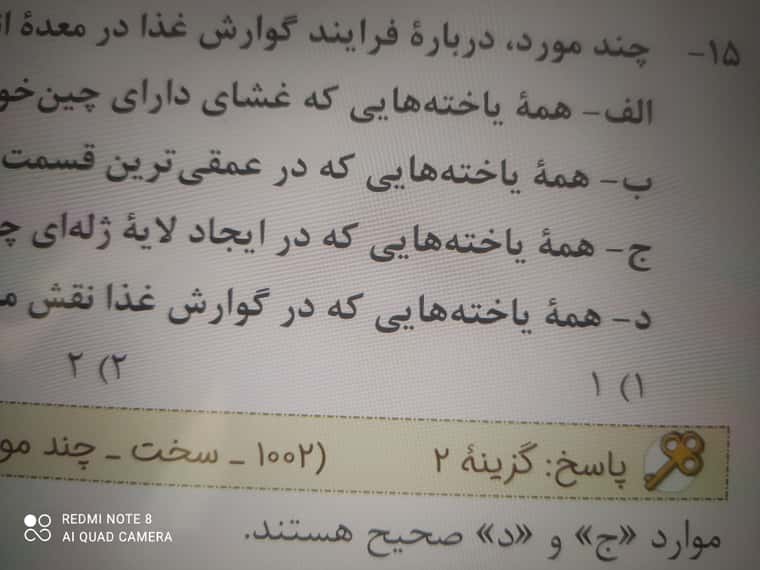 ۱۵- چند مورد، دربارهٔ فرایند گوارش غذا در معدهٔ
الف- همهٔ یاخته‌هایی که غشای دارای
ب- همهٔ یاخته‌هایی که در عمقی‌ترین قسمت
ج- همهٔ یاخته‌هایی که در ایجاد لایهٔ ژله‌ای
د- همهٔ یاخته‌هایی که در گوارش غذا نقش
۱) ۱ ۲) ۲
پاسخ: گزینهٔ ۲ (۱۰۰۲ - سخت - چند
موارد «ج» و «د» صحیح هستند.
REDMI NOTE 8
AI QUAD CAMERA